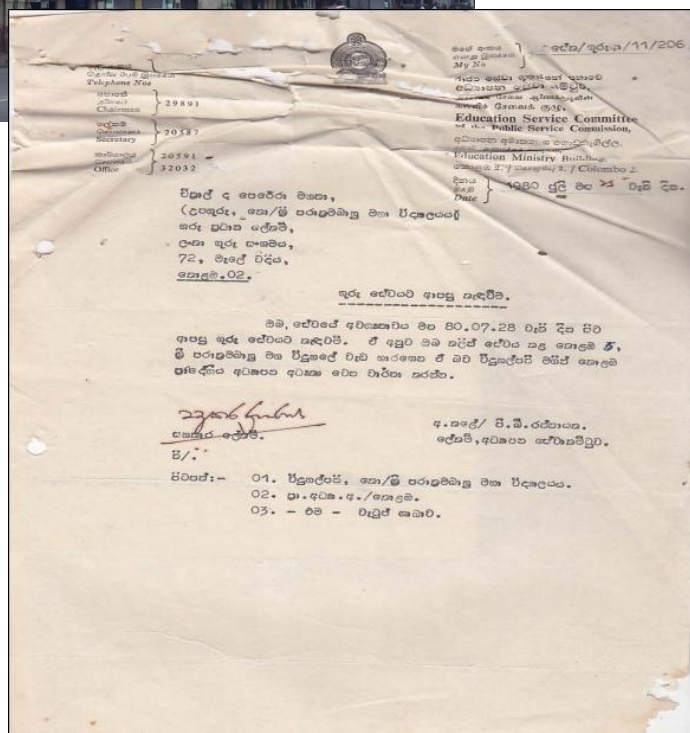 මගේ අංකය
My No
සේක/ගුරු.ය/11/206
Telephone Nos
සභාපති
Chairman
29891
ලේකම්
Secretary
20587
කාර්යාලය
Office
20591
32032
Education Service Committee
of the Public Service Commission,
Education Ministry Building,
කොළඹ 2. / கொழும்பு 2. / Colombo 2.
දිනය
Date
1980 ජුලි මස 25 වැනි දින.
වික්‍රාල් ද පෙරේරා මහතා,
(උපගුරු, කො/ශ්‍රී පරාක්‍රමබාහු මහා විද්‍යාලයය)
ගරු ප්‍රධාන ලේකම්,
ලංකා ගුරු සංගමය,
72, මැලේ වීදිය,
කොළඹ.02.
ගුරු සේවයට ආපසු කැඳවීම.
ඔබ, සේවයේ අවශ්‍යතාවය මත 80.07.28 වැනි දින සිට
ආපසු ගුරු සේවයට කැඳවමි. ඒ අනුව ඔබ කලින් සේවය කළ කොළඹ 5,
ශ්‍රී පරාක්‍රමබාහු මහා විදුහලේ වැඩ භාරගෙන ඒ බව විදුහල්පති මගින් කොළඹ
ප්‍රාදේශීය අධ්‍යාපන අධ්‍යක්ෂ වෙත වාර්තා කරන්න.
සහකාර ලේකම්.
අ.කළේ/ පී.බී.රත්නායක.
ලේකම්,අධ්‍යාපන සේවාකමිටුව.
පි/.
පිටපත්:- 01. විදුහල්පති, කො/ශ්‍රී පරාක්‍රමබාහු මහා විද්‍යාලයය.
02. ප්‍රා.අධ්‍යා.අ./කොළඹ.
03. - එම - වැටුප් ශාඛාව.